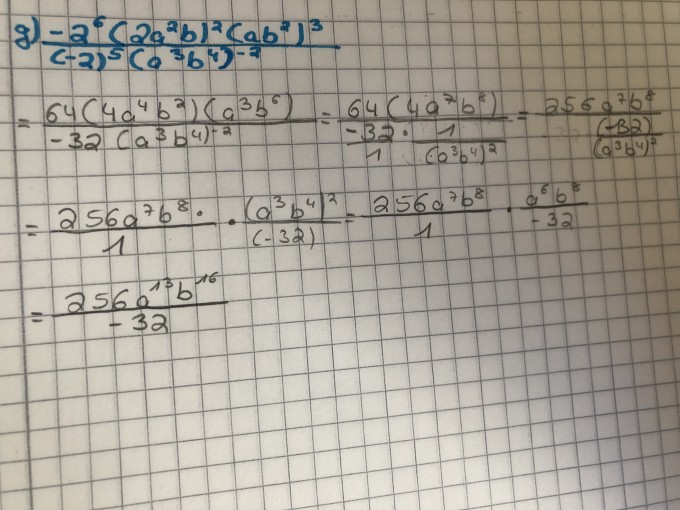 g) -2⁶(2a²b)²(ab²)³ / (-2)⁵(a³b⁴)⁻²
= 64(4a⁴b²)(a³b⁶) / -32(a³b⁴)⁻² = 64(4a⁷b⁸) / (-32/1 · 1/(a³b⁴)²) = 256a⁷b⁸ / ((-32)/(a³b⁴)²)
= 256a⁷b⁸· / 1 · (a³b⁴)² / (-32) = 256a⁷b⁸ / 1 · a⁶b⁸ / -32
= 256a¹³b¹⁶ / -32